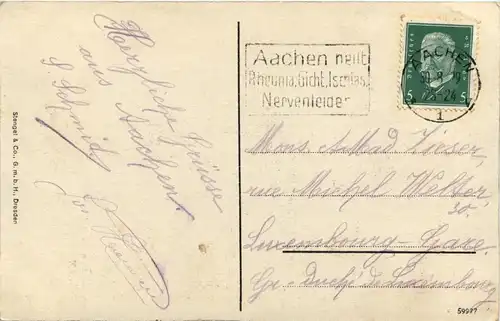 Herzliche Grüsse
aus Aachen
S. Schmit
Stengel & Co., G. m. b. H., Dresden
Aachen heilt
Rheuma, Gicht, Ischias,
Nervenleiden
AACHEN
5 5
1
Mons
rue Michel Welter
Luxembourg-Gare
Gr. Duché de Luxembourg
59977